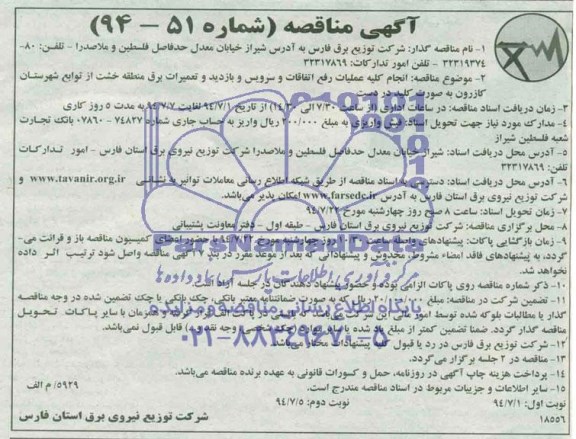 آگهی مناقصه (شماره ۵۱ - ۹۴)
۱- نام مناقصه گذار: شرکت توزیع برق فارس به آدرس شیراز خیابان معدل حدفاصل فلسطین و ملاصدرا - تلفن: ۸۰-
۳۲۳۱۹۳۷۴ - تلفن امور تدارکات: ۳۲۳۱۷۸۶۹
۲- موضوع مناقصه: انجام کلیه عملیات رفع اتفاقات و سرویس و بازدید و تعمیرات برق منطقه خشت از توابع شهرستان
کازرون به صورت کلید در دست
۳- زمان دریافت اسناد مناقصه: در ساعات اداری (از ساعت ۷/۳۰ الی ۱۴/۳۰) از تاریخ ۹۴/۷/۱ لغایت ۹۴/۷/۷ به مدت ۵ روز کاری
۴- مدارک مورد نیاز جهت تحویل اسناد: فیش واریزی به مبلغ ۲۰۰/۰۰۰ ریال واریز به حساب جاری شماره ۷۴۸۲۷-۰۷۸۶۰ بانک تجارت
شعبه فلسطین شیراز
۵- آدرس محل دریافت اسناد: شیراز خیابان معدل حدفاصل فلسطین و ملاصدرا شرکت توزیع نیروی برق استان فارس - امور تدارکات
تلفن: ۳۲۳۱۷۸۶۹
۶- آدرس محل دریافت اسناد: دسترسی به اسناد مناقصه از طریق شبکه اطلاع رسانی معاملات توانیر به نشانی www.tavanir.org.ir و
شرکت توزیع نیروی برق استان فارس به آدرس www.farsedc.ir امکان پذیر می‌باشد.
۷- زمان تحویل اسناد: ساعت ۸ صبح روز چهارشنبه مورخ ۹۴/۷/۲۲
۸- محل برگزاری مناقصه: شرکت توزیع نیروی برق استان فارس - طبقه اول - دفتر معاونت پشتیبانی
۹- زمان بازگشایی پاکات: پیشنهادهای واصله ساعت روز چهارشنبه مورخ با حضور اعضای کمیسیون مناقصه باز و قرائت می-
گردد، به پیشنهادهای فاقد امضاء مشروط، مخدوش و پیشنهاداتی که بعد از موعد مقرر در بند ۷ آگهی مناقصه واصل شود ترتیب اثر داده
نخواهد شد.
۱۰- ذکر شماره مناقصه روی پاکات الزامی بوده و حضور پیشنهاد دهندگان در جلسه آزاد است.
۱۱- تضمین شرکت در مناقصه: مبلغ ریال که به صورت ضمانتنامه معتبر بانکی، چک بانکی یا چک تضمین شده در وجه مناقصه
گذار یا مطالبات بلوکه شده توسط امور مالی این شرکت می‌باشد که بایستی در پاکت الف قرار گرفته و همزمان با سایر پاکات تحویل
مناقصه گذار گردد. ضمنا تضمین کمتر از مبلغ یاد شده یا سایر موارد (چک شخصی، وجه نقد و غیره) قابل قبول نمی‌باشد.
۱۲- شرکت توزیع برق فارس در رد یا قبول کل پیشنهادات مختار می‌باشد.
۱۳- مناقصه در ۲ جلسه برگزار می‌گردد.
۱۴- پرداخت هزینه چاپ آگهی در روزنامه، حمل و کسورات قانونی به عهده برنده مناقصه می‌باشد.
۱۵- سایر اطلاعات و جزییات مربوط در اسناد مناقصه مندرج است. ۵۹۲۹/م الف
نوبت اول: ۹۴/۷/۱ نوبت دوم: ۹۴/۷/۵
۱۸۵۵۶ شرکت توزیع نیروی برق استان فارس
ParsNamadData
مرکز فرآوری اطلاعات پارس نماد داده ها
پایگاه اطلاع رسانی مناقصه و مزایده
۰۲۱-۸۸۳۴۹۶۷۰-۵